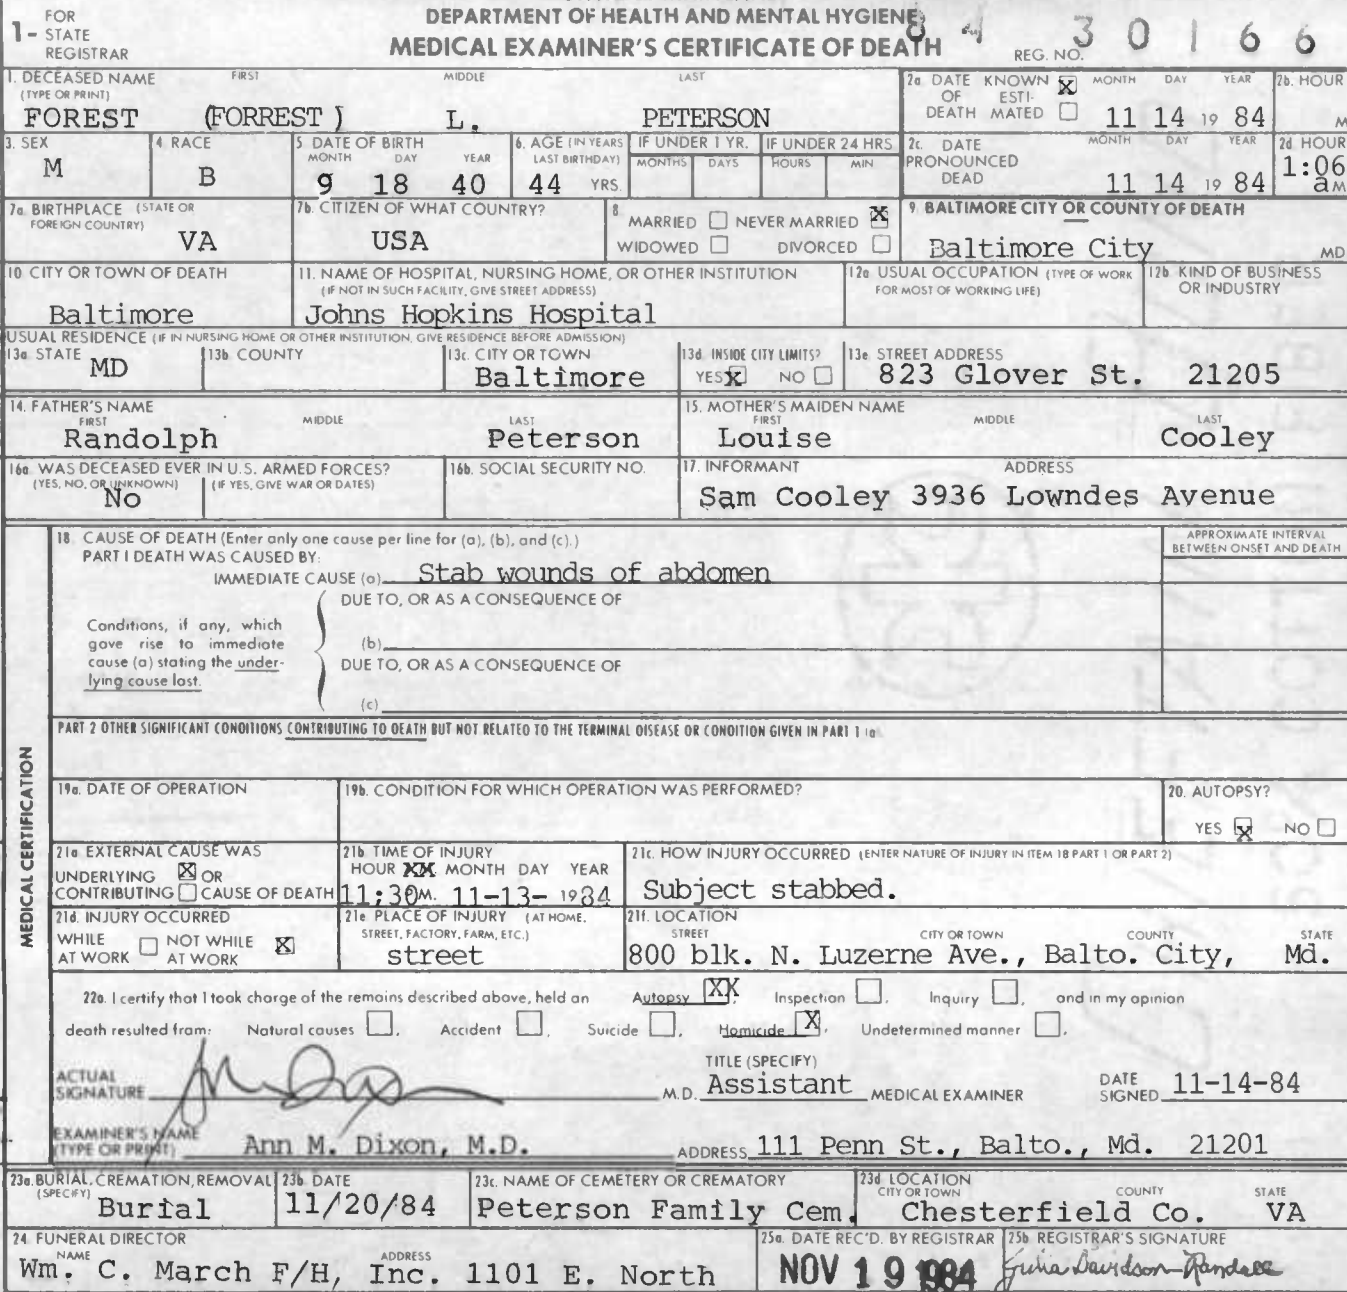 DEPARTMENT OF HEALTH AND MENTAL HYGIENE
MEDICAL EXAMINER'S CERTIFICATE OF DEATH
1- FOR STATE REGISTRAR
REG. NO. 84 30166
1. DECEASED NAME (TYPE OR PRINT) FIRST MIDDLE LAST
FOREST (FORREST) L. PETERSON
2a. DATE OF DEATH KNOWN X ESTIMATED MONTH DAY YEAR 11 14 19 84
2b. HOUR M
3. SEX M
4. RACE B
5. DATE OF BIRTH MONTH DAY YEAR 9 18 40
6. AGE (IN YEARS LAST BIRTHDAY) 44 YRS.
IF UNDER 1 YR. MONTHS DAYS
IF UNDER 24 HRS HOURS MIN
2c. DATE PRONOUNCED DEAD MONTH DAY YEAR 11 14 19 84
2d HOUR 1:06 a M
7a. BIRTHPLACE (STATE OR FOREIGN COUNTRY) VA
7b. CITIZEN OF WHAT COUNTRY? USA
8 MARRIED NEVER MARRIED X
WIDOWED DIVORCED
9. BALTIMORE CITY OR COUNTY OF DEATH
Baltimore City MD
10. CITY OR TOWN OF DEATH
Baltimore
11. NAME OF HOSPITAL, NURSING HOME, OR OTHER INSTITUTION
(IF NOT IN SUCH FACILITY, GIVE STREET ADDRESS)
Johns Hopkins Hospital
12a USUAL OCCUPATION (TYPE OF WORK FOR MOST OF WORKING LIFE)
12b KIND OF BUSINESS OR INDUSTRY
USUAL RESIDENCE (IF IN NURSING HOME OR OTHER INSTITUTION, GIVE RESIDENCE BEFORE ADMISSION)
13a STATE MD
13b COUNTY
13c. CITY OR TOWN Baltimore
13d INSIDE CITY LIMITS? YES X NO
13e STREET ADDRESS 823 Glover St. 21205
14. FATHER'S NAME FIRST MIDDLE LAST
Randolph Peterson
15. MOTHER'S MAIDEN NAME FIRST MIDDLE LAST
Louise Cooley
16a WAS DECEASED EVER IN U.S. ARMED FORCES?
(YES, NO, OR UNKNOWN) (IF YES, GIVE WAR OR DATES)
No
16b. SOCIAL SECURITY NO.
17. INFORMANT ADDRESS
Sam Cooley 3936 Lowndes Avenue
MEDICAL CERTIFICATION
18. CAUSE OF DEATH (Enter only one cause per line for (a), (b), and (c).)
PART I DEATH WAS CAUSED BY:
APPROXIMATE INTERVAL BETWEEN ONSET AND DEATH
IMMEDIATE CAUSE (a) Stab wounds of abdomen
DUE TO, OR AS A CONSEQUENCE OF
Conditions, if any, which gave rise to immediate cause (a) stating the under-lying cause last.
(b)
DUE TO, OR AS A CONSEQUENCE OF
(c)
PART 2 OTHER SIGNIFICANT CONDITIONS CONTRIBUTING TO DEATH BUT NOT RELATED TO THE TERMINAL DISEASE OR CONDITION GIVEN IN PART 1 (a)
19a. DATE OF OPERATION
19b. CONDITION FOR WHICH OPERATION WAS PERFORMED?
20. AUTOPSY?
YES X NO
21a EXTERNAL CAUSE WAS
UNDERLYING X OR
CONTRIBUTING CAUSE OF DEATH
21b TIME OF INJURY
HOUR XX MONTH DAY YEAR
11:30 M. 11-13- 1984
21c. HOW INJURY OCCURRED (ENTER NATURE OF INJURY IN ITEM 18 PART 1 OR PART 2)
Subject stabbed.
21d. INJURY OCCURRED
WHILE AT WORK NOT WHILE AT WORK X
21e PLACE OF INJURY (AT HOME, STREET, FACTORY, FARM, ETC.)
street
21f. LOCATION
STREET CITY OR TOWN COUNTY STATE
800 blk. N. Luzerne Ave., Balto. City, Md.
22a. I certify that I took charge of the remains described above, held an Autopsy XX, Inspection, Inquiry, and in my opinion
death resulted from: Natural causes, Accident, Suicide, Homicide X, Undetermined manner.
ACTUAL SIGNATURE M.D.
TITLE (SPECIFY)
Assistant MEDICAL EXAMINER
DATE SIGNED 11-14-84
EXAMINER'S NAME (TYPE OR PRINT) Ann M. Dixon, M.D.
ADDRESS 111 Penn St., Balto., Md. 21201
23a. BURIAL, CREMATION, REMOVAL (SPECIFY) Burial
23b. DATE 11/20/84
23c. NAME OF CEMETERY OR CREMATORY
Peterson Family Cem.
23d LOCATION CITY OR TOWN COUNTY STATE
Chesterfield Co. VA
24. FUNERAL DIRECTOR
NAME ADDRESS
Wm. C. March F/H, Inc. 1101 E. North
25a. DATE REC'D. BY REGISTRAR
NOV 19 1984
25b REGISTRAR'S SIGNATURE
Julia Davidson-Randall